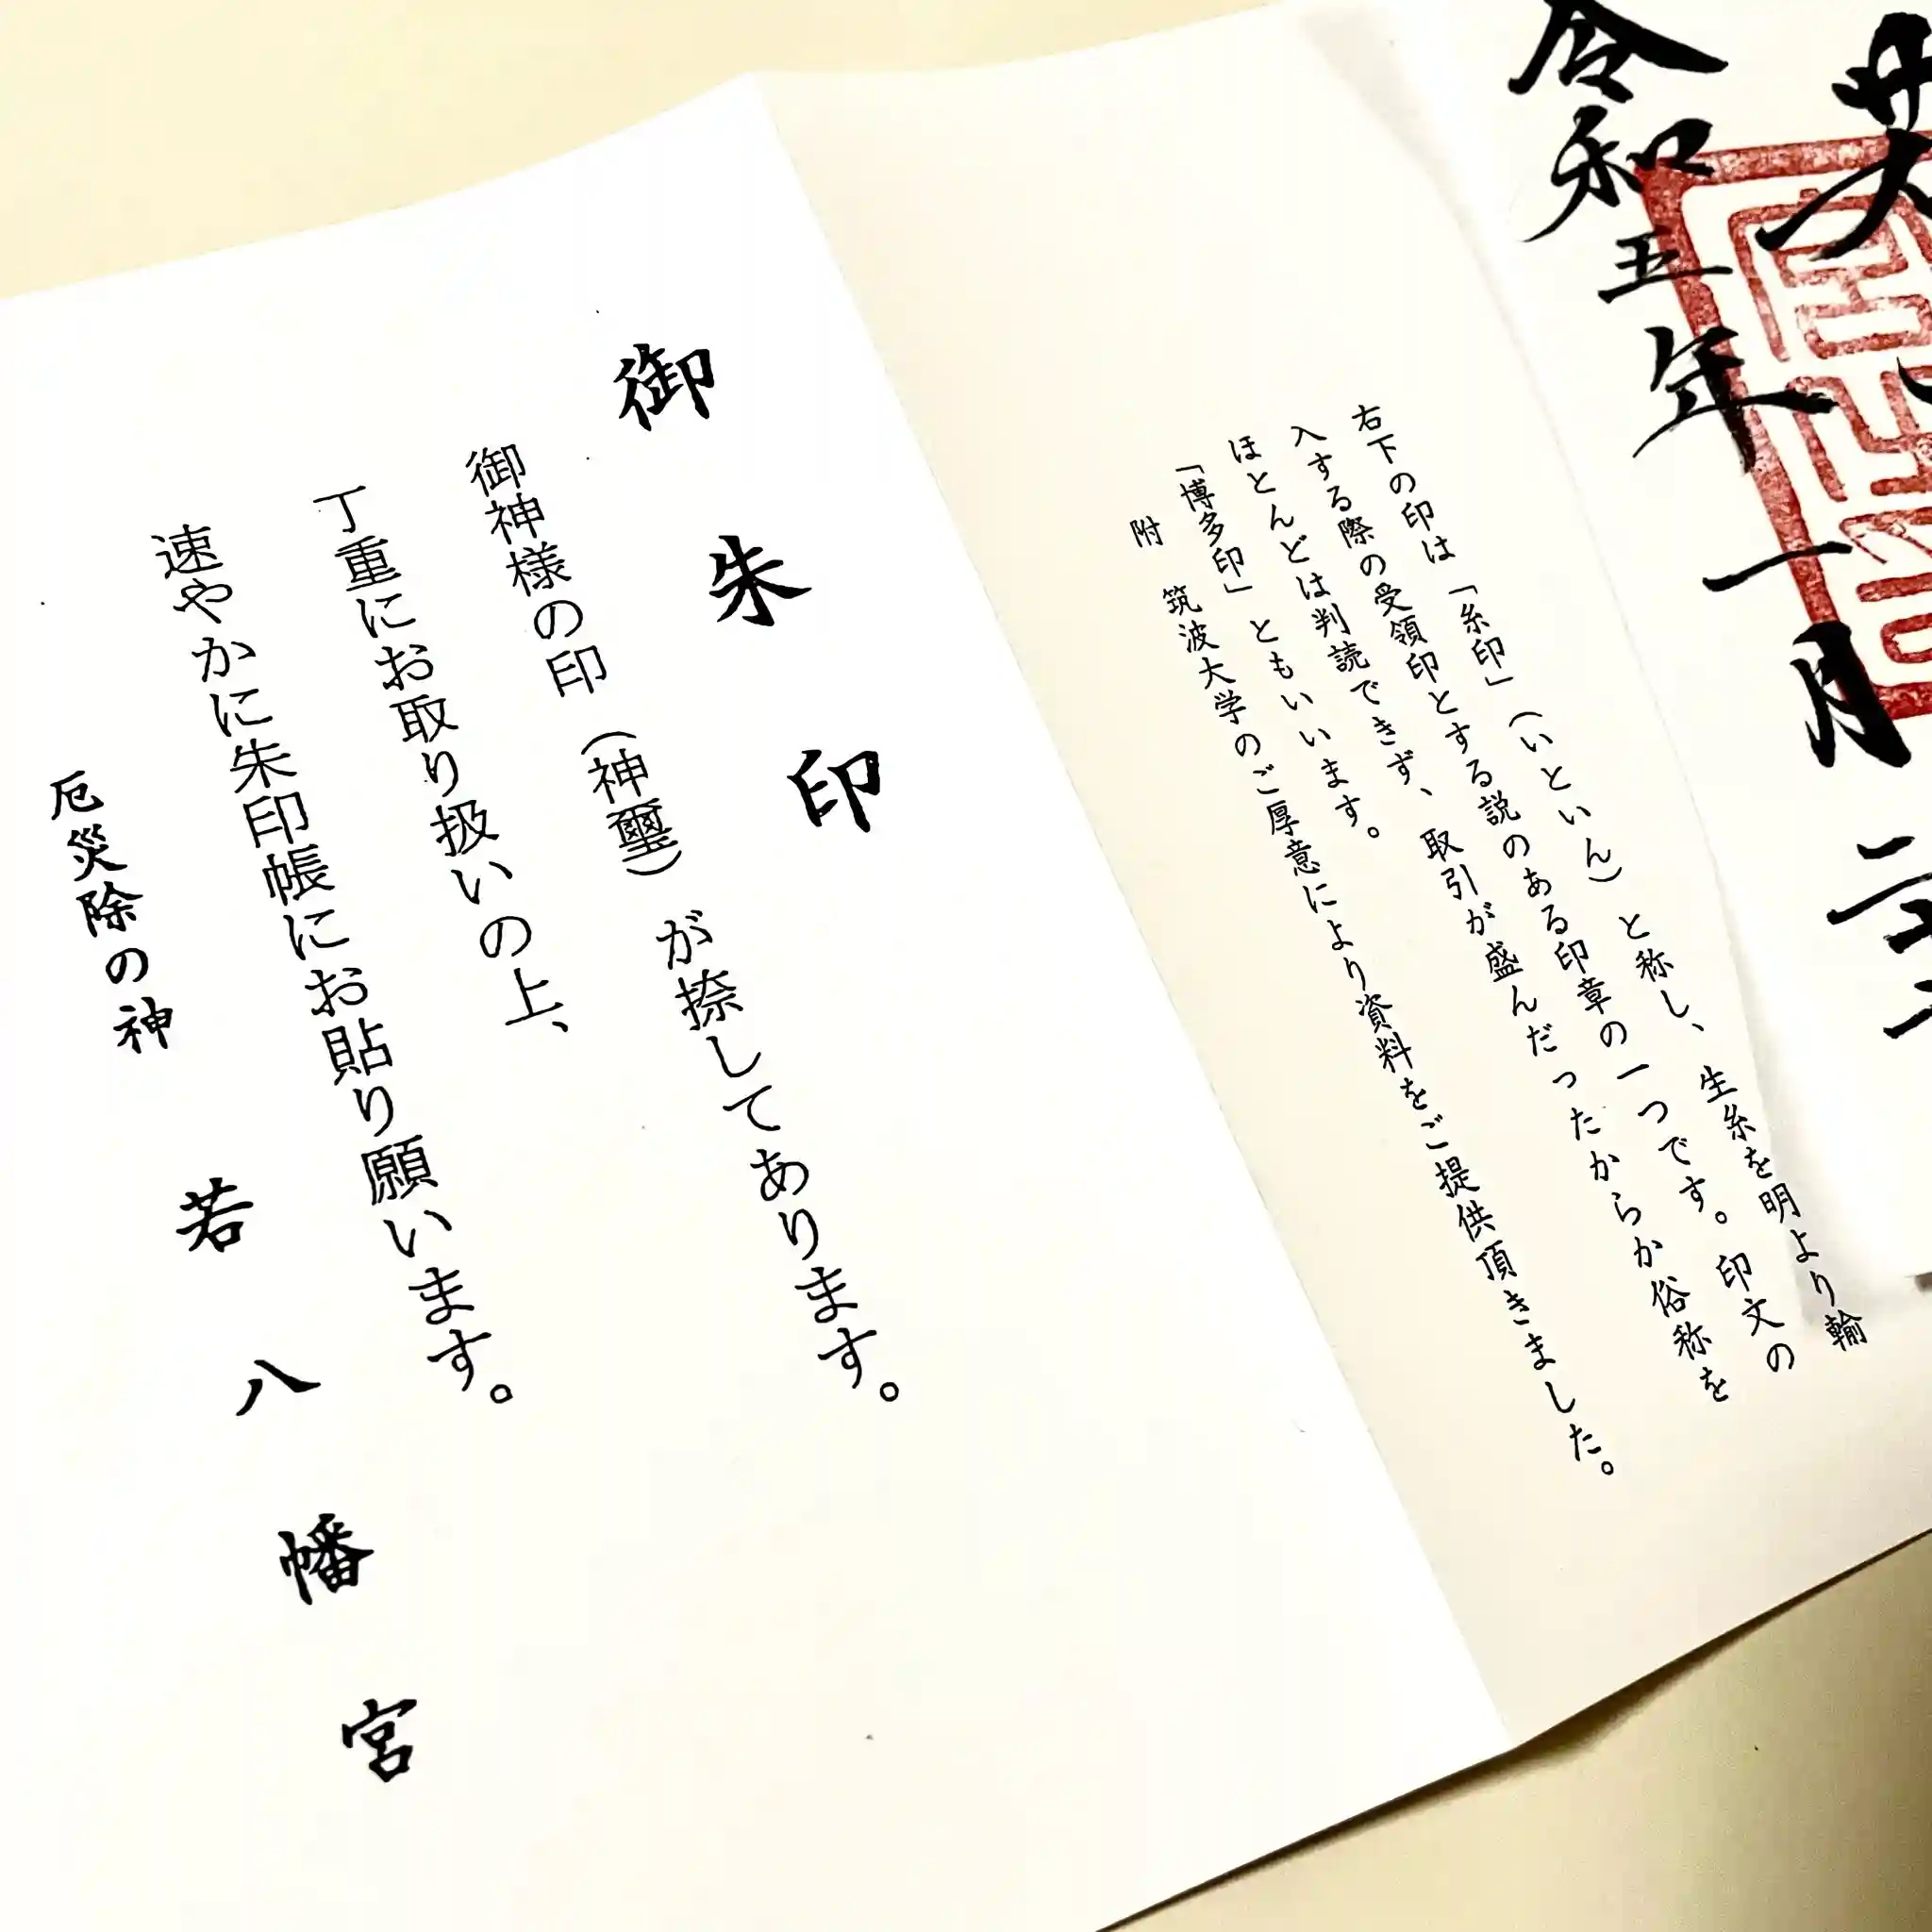 令和五年一月二
右下の印は「糸印」（いといん）と称し、生糸を明より輸
入する際の受領印とする説のある印章の一つです。印文の
ほとんどは判読できず、取引が盛んだったからか俗称を
「博多印」ともいいます。
附　筑波大学のご厚意により資料をご提供頂きました。
御朱印
御神様の印（神璽）が捺してあります。
丁重にお取り扱いの上、
速やかに朱印帳にお貼り願います。
厄災除の神　若八幡宮